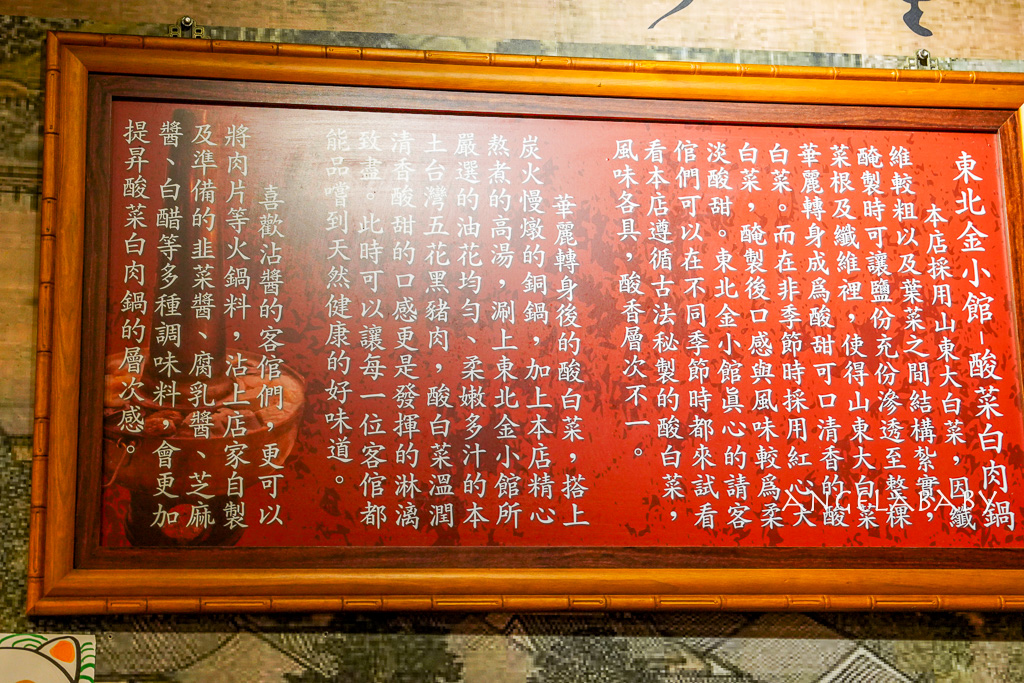 東北金小館–酸菜白肉鍋
本店採用山東大白菜，因纖
維較粗以及葉菜之間結構紮實，
醃製時可讓鹽份充份滲透至整棵
菜根及纖維裡，使得山東大白菜
華麗轉身成為酸甜可口清香的酸
白菜。而在非季節時採用紅心大
白菜，醃製後口感與風味較為柔
淡酸甜。東北金小館真心的請客
倌們可以在不同季節時都來試看
看本店遵循古法秘製的酸白菜，
風味各具，酸香層次不一。
華麗轉身後的酸白菜，搭上
炭火慢燉的銅鍋，加上本店精心
熬煮的高湯，涮上東北金小館所
嚴選的油花均勻、柔嫩多汁的本
土台灣五花黑豬肉，酸白菜溫潤
清香酸甜的口感更是發揮的淋漓
致盡。此時可以讓每一位客倌都
能品嚐到天然健康的好味道。
喜歡沾醬的客倌們，更可以
將肉片等火鍋料，沾上店家自製
及準備的韭菜醬、腐乳醬、芝麻
醬、白醋等多種調味料，會更加
提昇酸菜白肉鍋的層次感。
ANGELABABY